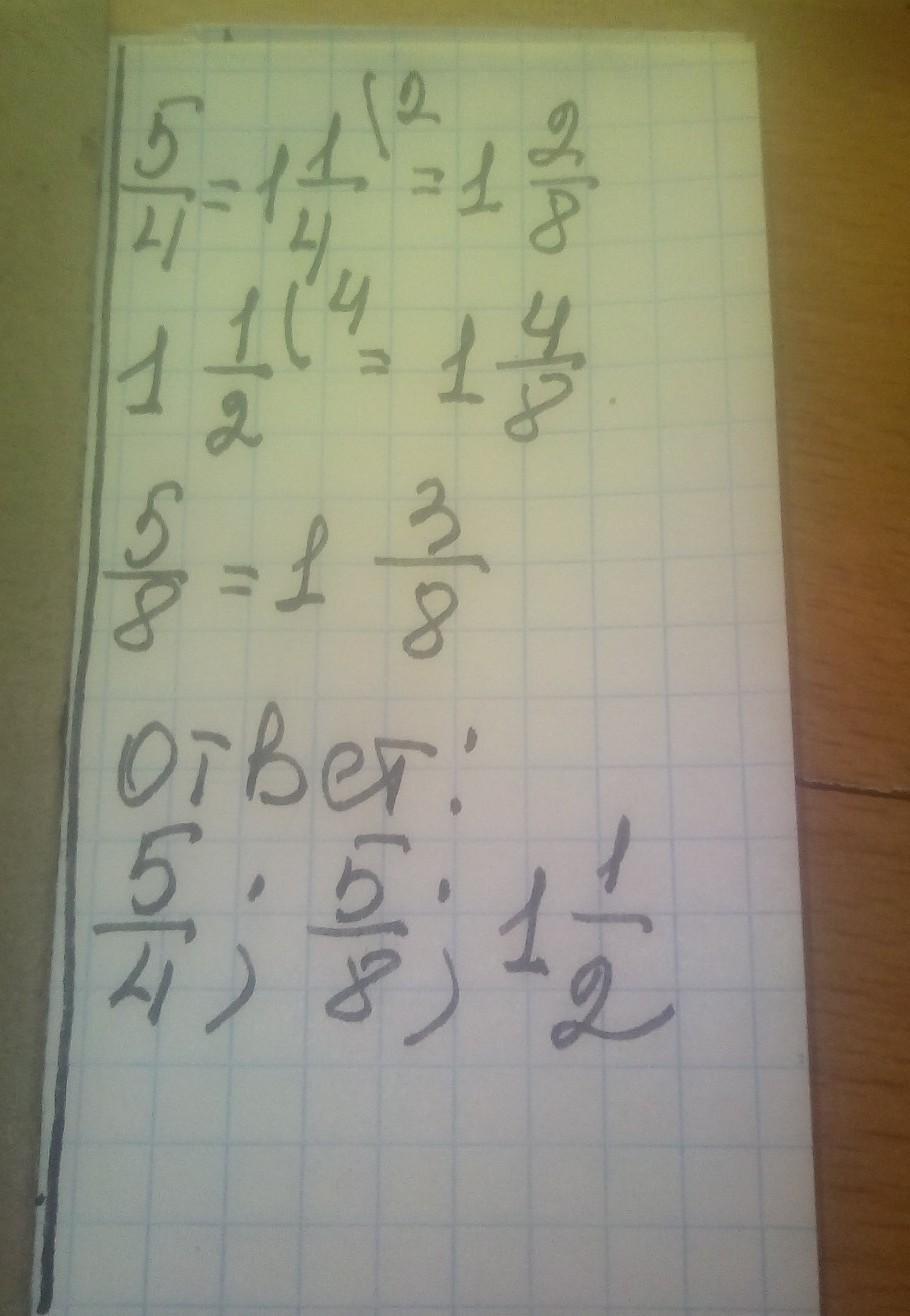 5/4 = 1 1/4 (2 = 1 2/8
1 1/2 (4 = 1 4/8
5/8 = 1 3/8
Ответ:
5/4 ; 5/8 ; 1 1/2